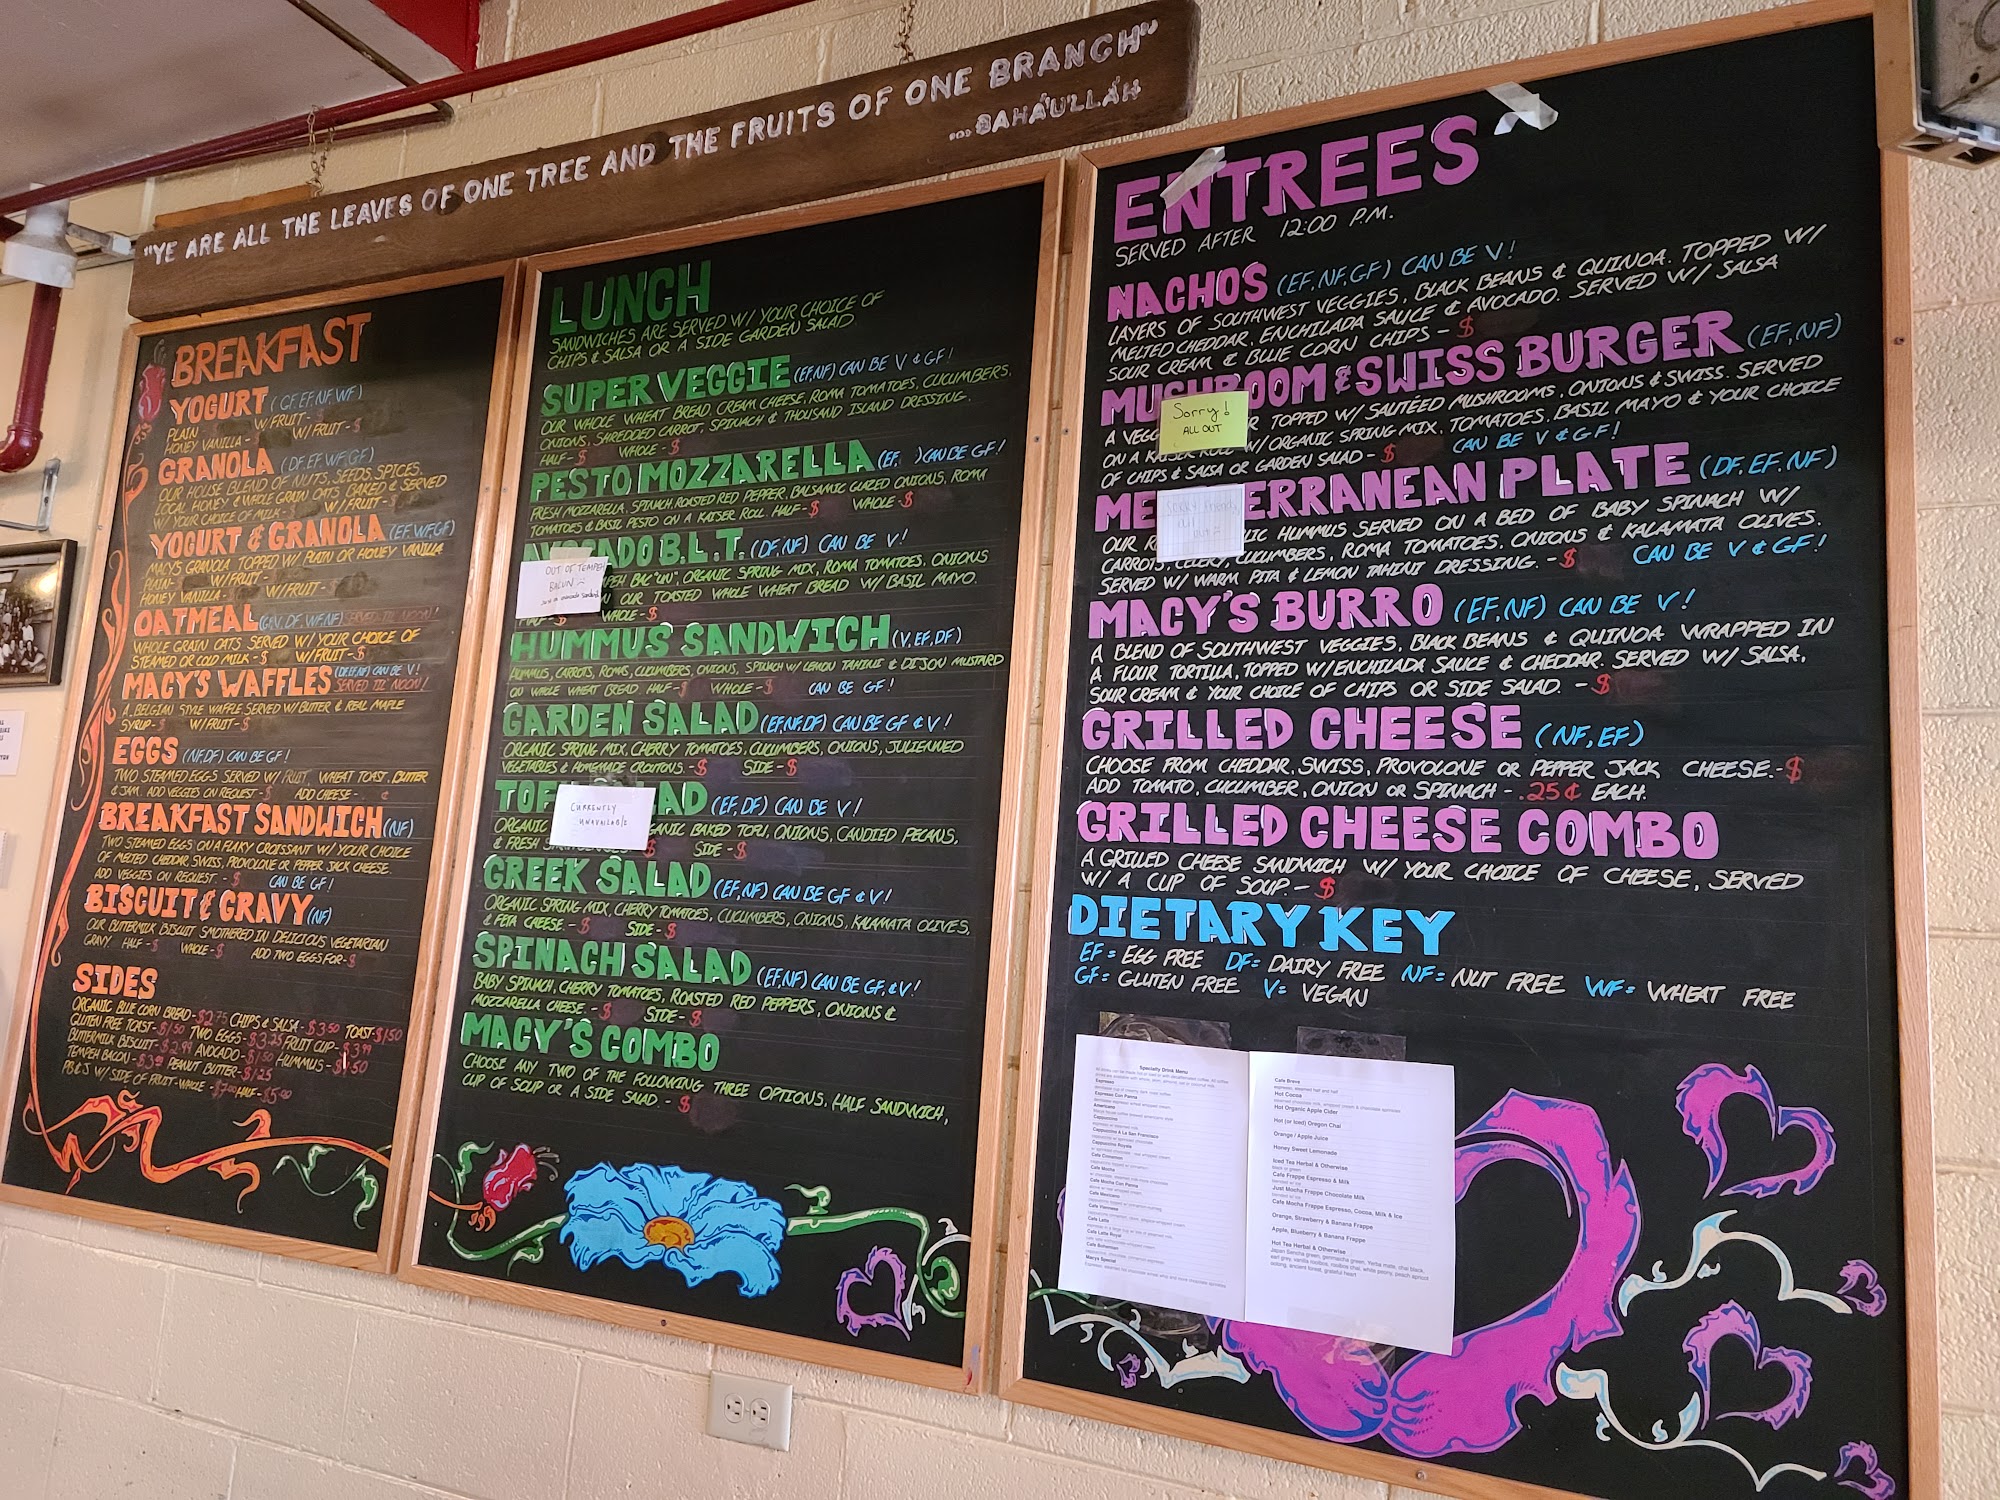 "YE ARE ALL THE LEAVES OF ONE TREE AND THE FRUITS OF ONE BRANCH"
... BAHÁ'U'LLÁH
BREAKFAST
YOGURT (GF,EF,NF,WF)
PLAIN - W/FRUIT - $
HONEY VANILLA - $ W/FRUIT - $
GRANOLA (DF,EF,WF,GF)
OUR HOUSE BLEND OF NUTS, SEEDS, SPICES,
LOCAL HONEY & WHOLE GRAIN OATS BAKED & SERVED
W/ YOUR CHOICE OF MILK - W/FRUIT - $
YOGURT & GRANOLA (EF,WF,GF)
MACYS GRANOLA TOPPED W/ PLAIN OR HONEY VANILLA
PLAIN- W/FRUIT -
HONEY VANILLA - W/FRUIT - $
OATMEAL (V, DF, WF, NF) SERVED TIL NOON!
WHOLE GRAIN OATS SERVED W/ YOUR CHOICE OF
STEAMED OR COLD MILK - $ W/FRUIT - $
MACY'S WAFFLES (DF,EF,NF) CAN BE V!
SERVED TIL NOON!
A BELGIAN STYLE WAFFLE SERVED W/ BUTTER & REAL MAPLE
SYRUP - $ W/ FRUIT - $
EGGS (NF,DF) CAN BE GF!
TWO STEAMED EGGS SERVED W/ FRUIT, WHEAT TOAST, BUTTER
& JAM. ADD VEGGIES ON REQUEST - $ ADD CHEESE - ¢
BREAKFAST SANDWICH (NF)
TWO STEAMED EGGS ON A FLAKY CROISSANT W/ YOUR CHOICE
OF MELTED CHEDDAR, SWISS, PROVOLONE OR PEPPER JACK CHEESE.
ADD VEGGIES ON REQUEST. - $ CAN BE GF!
BISCUIT & GRAVY (NF)
OUR BUTTERMILK BISCUIT SMOTHERED IN DELICIOUS VEGETARIAN
GRAVY. HALF - $ WHOLE - $ ADD TWO EGGS FOR - $
SIDES
ORGANIC BLUE CORN BREAD - $2.75 CHIPS & SALSA - $3.50 TOAST - $1.50
GLUTEN FREE TOAST - $1.50 TWO EGGS - $3.25 FRUIT CUP - $3.99
BUTTERMILK BISCUIT - $2.99 AVOCADO - $1.50 HUMMUS - $1.50
TEMPEH BACON - $3.99 PEANUT BUTTER - $1.25
PB & J W/ SIDE OF FRUIT - WHOLE - $7.00 HALF - $5.00
LUNCH
SANDWICHES ARE SERVED W/ YOUR CHOICE OF
CHIPS & SALSA OR A SIDE GARDEN SALAD.
SUPER VEGGIE (EF,NF) CAN BE V & GF!
OUR WHOLE WHEAT BREAD, CREAM CHEESE, ROMA TOMATOES, CUCUMBERS,
ONIONS, SHREDDED CARROT, SPINACH & THOUSAND ISLAND DRESSING.
HALF - $ WHOLE - $
PESTO MOZZARELLA (EF, ) CAN BE GF!
FRESH MOZZARELLA, SPINACH, ROASTED RED PEPPER, BALSAMIC GLAZED ONIONS, ROMA
TOMATOES & BASIL PESTO ON A KAISER ROLL HALF - $ WHOLE - $
AVOCADO B.L.T. (DF,NF) CAN BE V!
OUT OF TEMPEH
BACUN ~
Just an avocado sandwich
TEMPEH BAC"UN", ORGANIC SPRING MIX, ROMA TOMATOES, ONIONS
ON OUR TOASTED WHOLE WHEAT BREAD W/ BASIL MAYO.
HALF - $ WHOLE - $
HUMMUS SANDWICH (V,EF,DF)
HUMMUS, CARROTS, ROMAS, CUCUMBERS, ONIONS, SPINACH W/ LEMON TAHINI & DIJON MUSTARD
ON WHOLE WHEAT BREAD. HALF - $ WHOLE - $ CAN BE GF!
GARDEN SALAD (EF,NF,DF) CAN BE GF & V!
ORGANIC SPRING MIX, CHERRY TOMATOES, CUCUMBERS, ONIONS, JULIENNED
VEGETABLES & HOMEMADE CROUTONS. - $ SIDE - $
TOFU SALAD (EF, DF) CAN BE V!
CURRENTLY
UNAVAILABLE
ORGANIC ORGANIC BAKED TOFU, ONIONS, CANDIED PECANS,
& FRESH $ SIDE - $
GREEK SALAD (EF,NF) CAN BE GF & V!
ORGANIC SPRING MIX, CHERRY TOMATOES, CUCUMBERS, ONIONS, KALAMATA OLIVES,
& FETA CHEESE - $ SIDE - $
SPINACH SALAD (EF,NF) CAN BE GF, & V!
BABY SPINACH, CHERRY TOMATOES, ROASTED RED PEPPERS, ONIONS &
MOZZARELLA CHEESE. - $ SIDE - $
MACY'S COMBO
CHOOSE ANY TWO OF THE FOLLOWING THREE OPTIONS, HALF SANDWICH,
CUP OF SOUP OR A SIDE SALAD. - $
ENTREES
SERVED AFTER 12:00 P.M.
NACHOS (EF,NF,GF) CAN BE V!
LAYERS OF SOUTHWEST VEGGIES, BLACK BEANS & QUINOA. TOPPED W/
MELTED CHEDDAR, ENCHILADA SAUCE & AVOCADO. SERVED W/ SALSA
SOUR CREAM & BLUE CORN CHIPS - $
MUSHROOM & SWISS BURGER (EF,NF)
Sorry!
ALL OUT
A VEGG TOPPED W/ SAUTÉED MUSHROOMS, ONIONS & SWISS. SERVED
ON A KAISER ROLL W/ ORGANIC SPRING MIX, TOMATOES, BASIL MAYO & YOUR CHOICE
OF CHIPS & SALSA OR GARDEN SALAD - $ CAN BE V & GF!
MEDITERRANEAN PLATE (DF, EF, NF)
OUR HUMMUS SERVED ON A BED OF BABY SPINACH W/
CARROTS, CELERY, CUCUMBERS, ROMA TOMATOES, ONIONS & KALAMATA OLIVES.
SERVED W/ WARM PITA & LEMON TAHINI DRESSING. - $ CAN BE V & GF!
MACY'S BURRO (EF,NF) CAN BE V!
A BLEND OF SOUTHWEST VEGGIES, BLACK BEANS & QUINOA WRAPPED IN
A FLOUR TORTILLA, TOPPED W/ ENCHILADA SAUCE & CHEDDAR. SERVED W/ SALSA,
SOUR CREAM & YOUR CHOICE OF CHIPS OR SIDE SALAD. - $
GRILLED CHEESE (NF, EF)
CHOOSE FROM CHEDDAR, SWISS, PROVOLONE OR PEPPER JACK CHEESE. - $
ADD TOMATO, CUCUMBER, ONION OR SPINACH - .25¢ EACH.
GRILLED CHEESE COMBO
A GRILLED CHEESE SANDWICH W/ YOUR CHOICE OF CHEESE, SERVED
W/ A CUP OF SOUP. - $
DIETARY KEY
EF = EGG FREE DF= DAIRY FREE NF= NUT FREE
GF= GLUTEN FREE V= VEGAN WF= WHEAT FREE
Specialty Drink Menu
Espresso
Espresso Con Panna
Americano
Cappuccino
Cappuccino A La San Francisco
Cappuccino Royale
Cafe Cinnamon
Cafe Mocha
Cafe Mocha Con Panna
Cafe Mexicano
Cafe Viennese
Cafe Latte
Cafe Latte Royal
Cafe Bohemian
Macys Special
Cafe Breve
espresso, steamed half and half
Hot Cocoa
Hot Organic Apple Cider
Hot (or Iced) Oregon Chai
Orange / Apple Juice
Honey Sweet Lemonade
Iced Tea Herbal & Otherwise
Cafe Frappe Espresso & Milk
Just Mocha Frappe Chocolate Milk
Cafe Mocha Frappe Espresso, Cocoa, Milk & Ice
Orange, Strawberry & Banana Frappe
Apple, Blueberry & Banana Frappe
Hot Tea Herbal & Otherwise